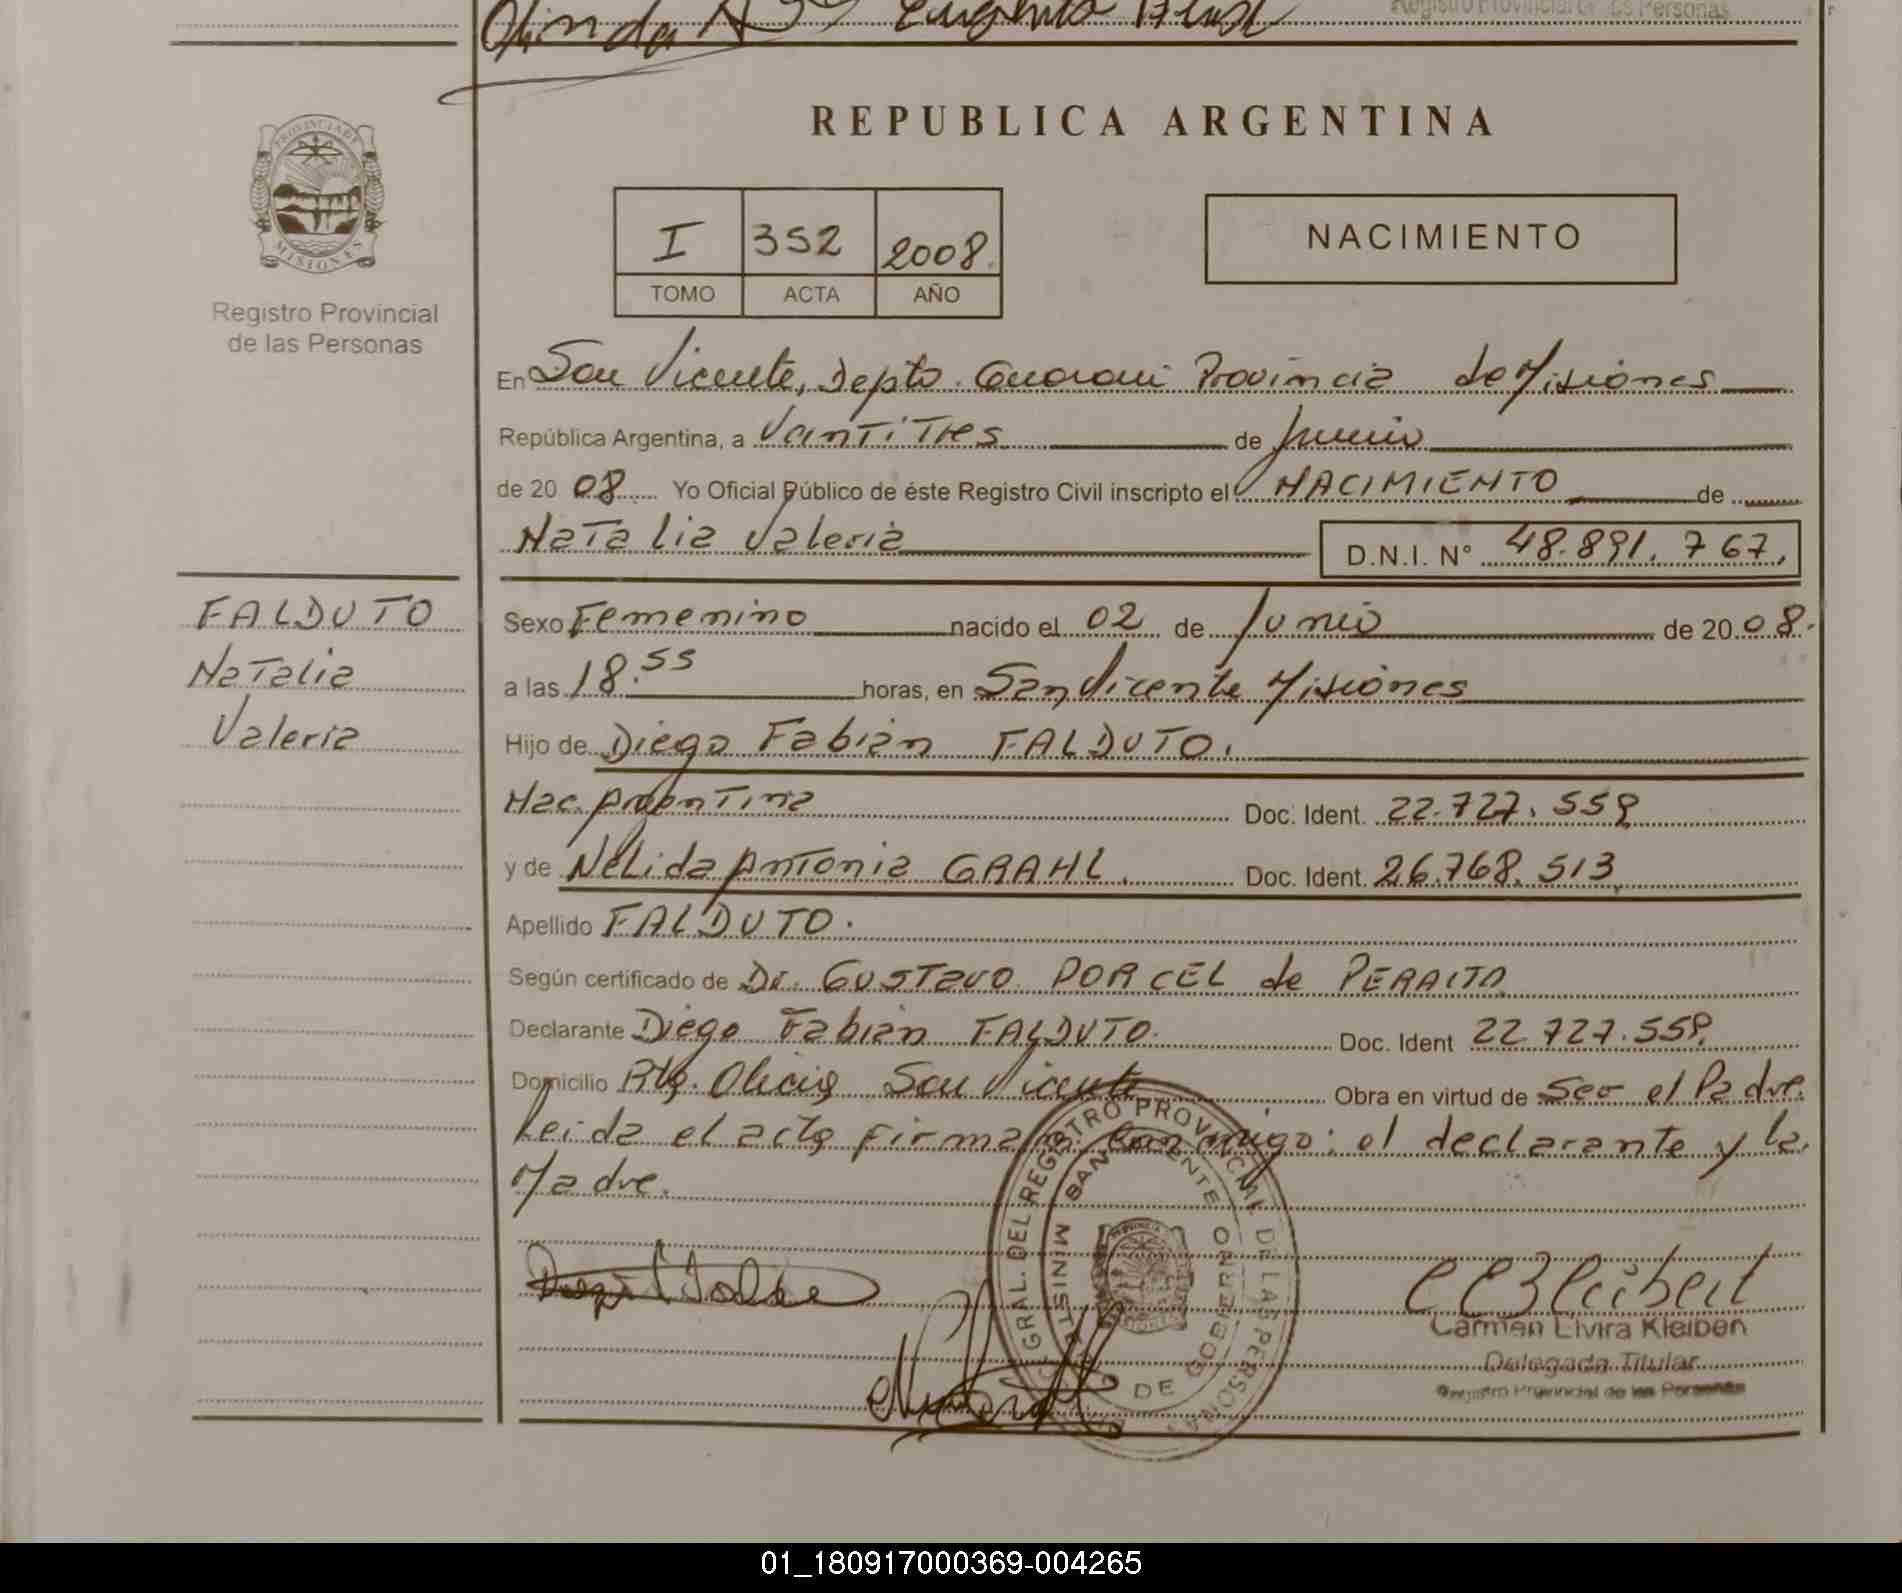 Olinda A Eugenio
Registro Provincial de las Personas
PROVINCIA DE
MISIONES
REPUBLICA ARGENTINA
I 352 2008
TOMO ACTA AÑO
NACIMIENTO
Registro Provincial
de las Personas
En San Vicente, Depto. Guarani Provincia de Misiones
República Argentina, a VeinTiTres de Junio
de 2008 Yo Oficial Público de éste Registro Civil inscripto el NACIMIENTO de
NaTalia Valeria D.N.I. N° 48.891.767.
FALDUTO
NaTalia
Valeria
Sexo Femenino nacido el 02 de Junio de 2008.
a las 18.55 horas, en San Vicente Misiones
Hijo de Diego Fabián FALDUTO.
Nac. ArgenTina Doc. Ident. 22.727.559
y de NéLida AnTonia GRAHL. Doc. Ident. 26.768.513
Apellido FALDUTO.
Según certificado de Dr. GUSTavo PORCEL de PERALTA
Declarante Diego Fabián FALDUTO. Doc. Ident 22.727.559.
Domicilio San Vicente Obra en virtud de Ser el Padre.
Leida el acta firman conmigo: el declarante y la
Madre.
GRAL. DEL REGISTRO PROVINCIAL DE LAS PERSONAS
SAN VICENTE
MINISTERIO DE GOBIERNO
Carmen Elvira Kleiben
Delegada Titular
Registro Provincial de las Personas
01_180917000369-004265